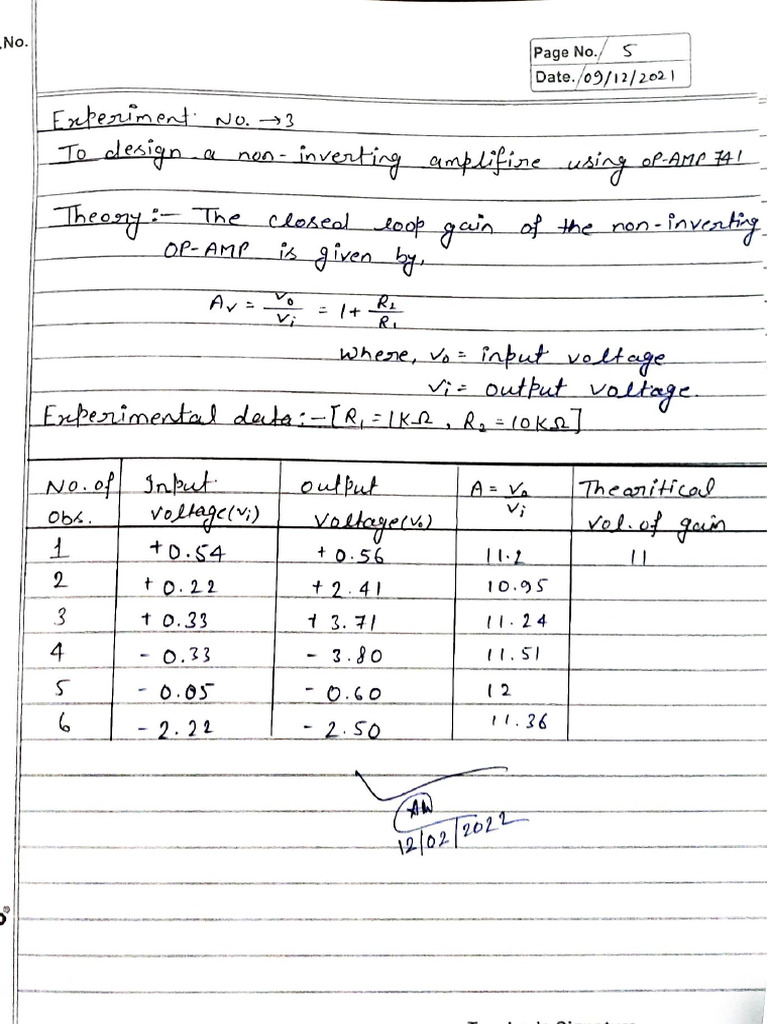 No.
Page No. 5
Date. 09/12/2021
Experiment No. → 3
To design a non-inverting amplifire using OP-AMP 741
Theory :- The closed loop gain of the non-inverting
OP-AMP is given by,
Av = Vo/Vi = 1 + R2/R1
Where, Vo = input voltage
Vi = output voltage.
Experimental data :- [R1 = 1KΩ, R2 = 10KΩ]
No. of Obs. | Input voltage (Vi) | Output voltage (Vo) | A = Vo/Vi | Thearitical vol. of gain
1 | +0.54 | +0.56 | 11.2 | 11
2 | +0.22 | +2.41 | 10.95
3 | +0.33 | +3.71 | 11.24
4 | -0.33 | -3.80 | 11.51
5 | -0.05 | -0.60 | 12
6 | -2.22 | -2.50 | 11.36
12/02/2022